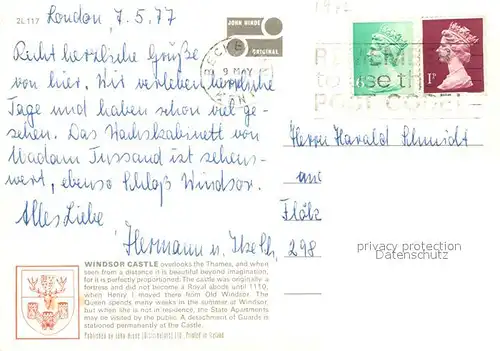 2L117
London, 7.5.77
JOHN HINDE
ORIGINAL
Recht herzliche Grüße
von hier. Wir verleben herrliche
Tage und haben schon viel ge-
sehen. Das Wachskabinett von
Madam Tussand ist sehens-
wert, ebenso Schloß Windsor.
Alles Liebe
Hermann u.
9 MAY
REMEMBER
to use the
POST CODE
1P
Herrn Harald Schmidt
298
privacy protection
VarsaviaCards.com
WINDSOR CASTLE overlooks the Thames, and when
seen from a distance it is beautiful beyond imagination,
for it is perfectly proportioned. The castle was originally a
fortress and did not become a Royal abode until 1110,
when Henry I moved there from Old Windsor. The
Queen spends many weeks in the summer at Windsor,
but when she is not in residence, the State Apartments
may be visited by the public. A detachment of Guards is
stationed permanently at the Castle.
Published by John Hinde (Distributors) Ltd. Printed in Ireland